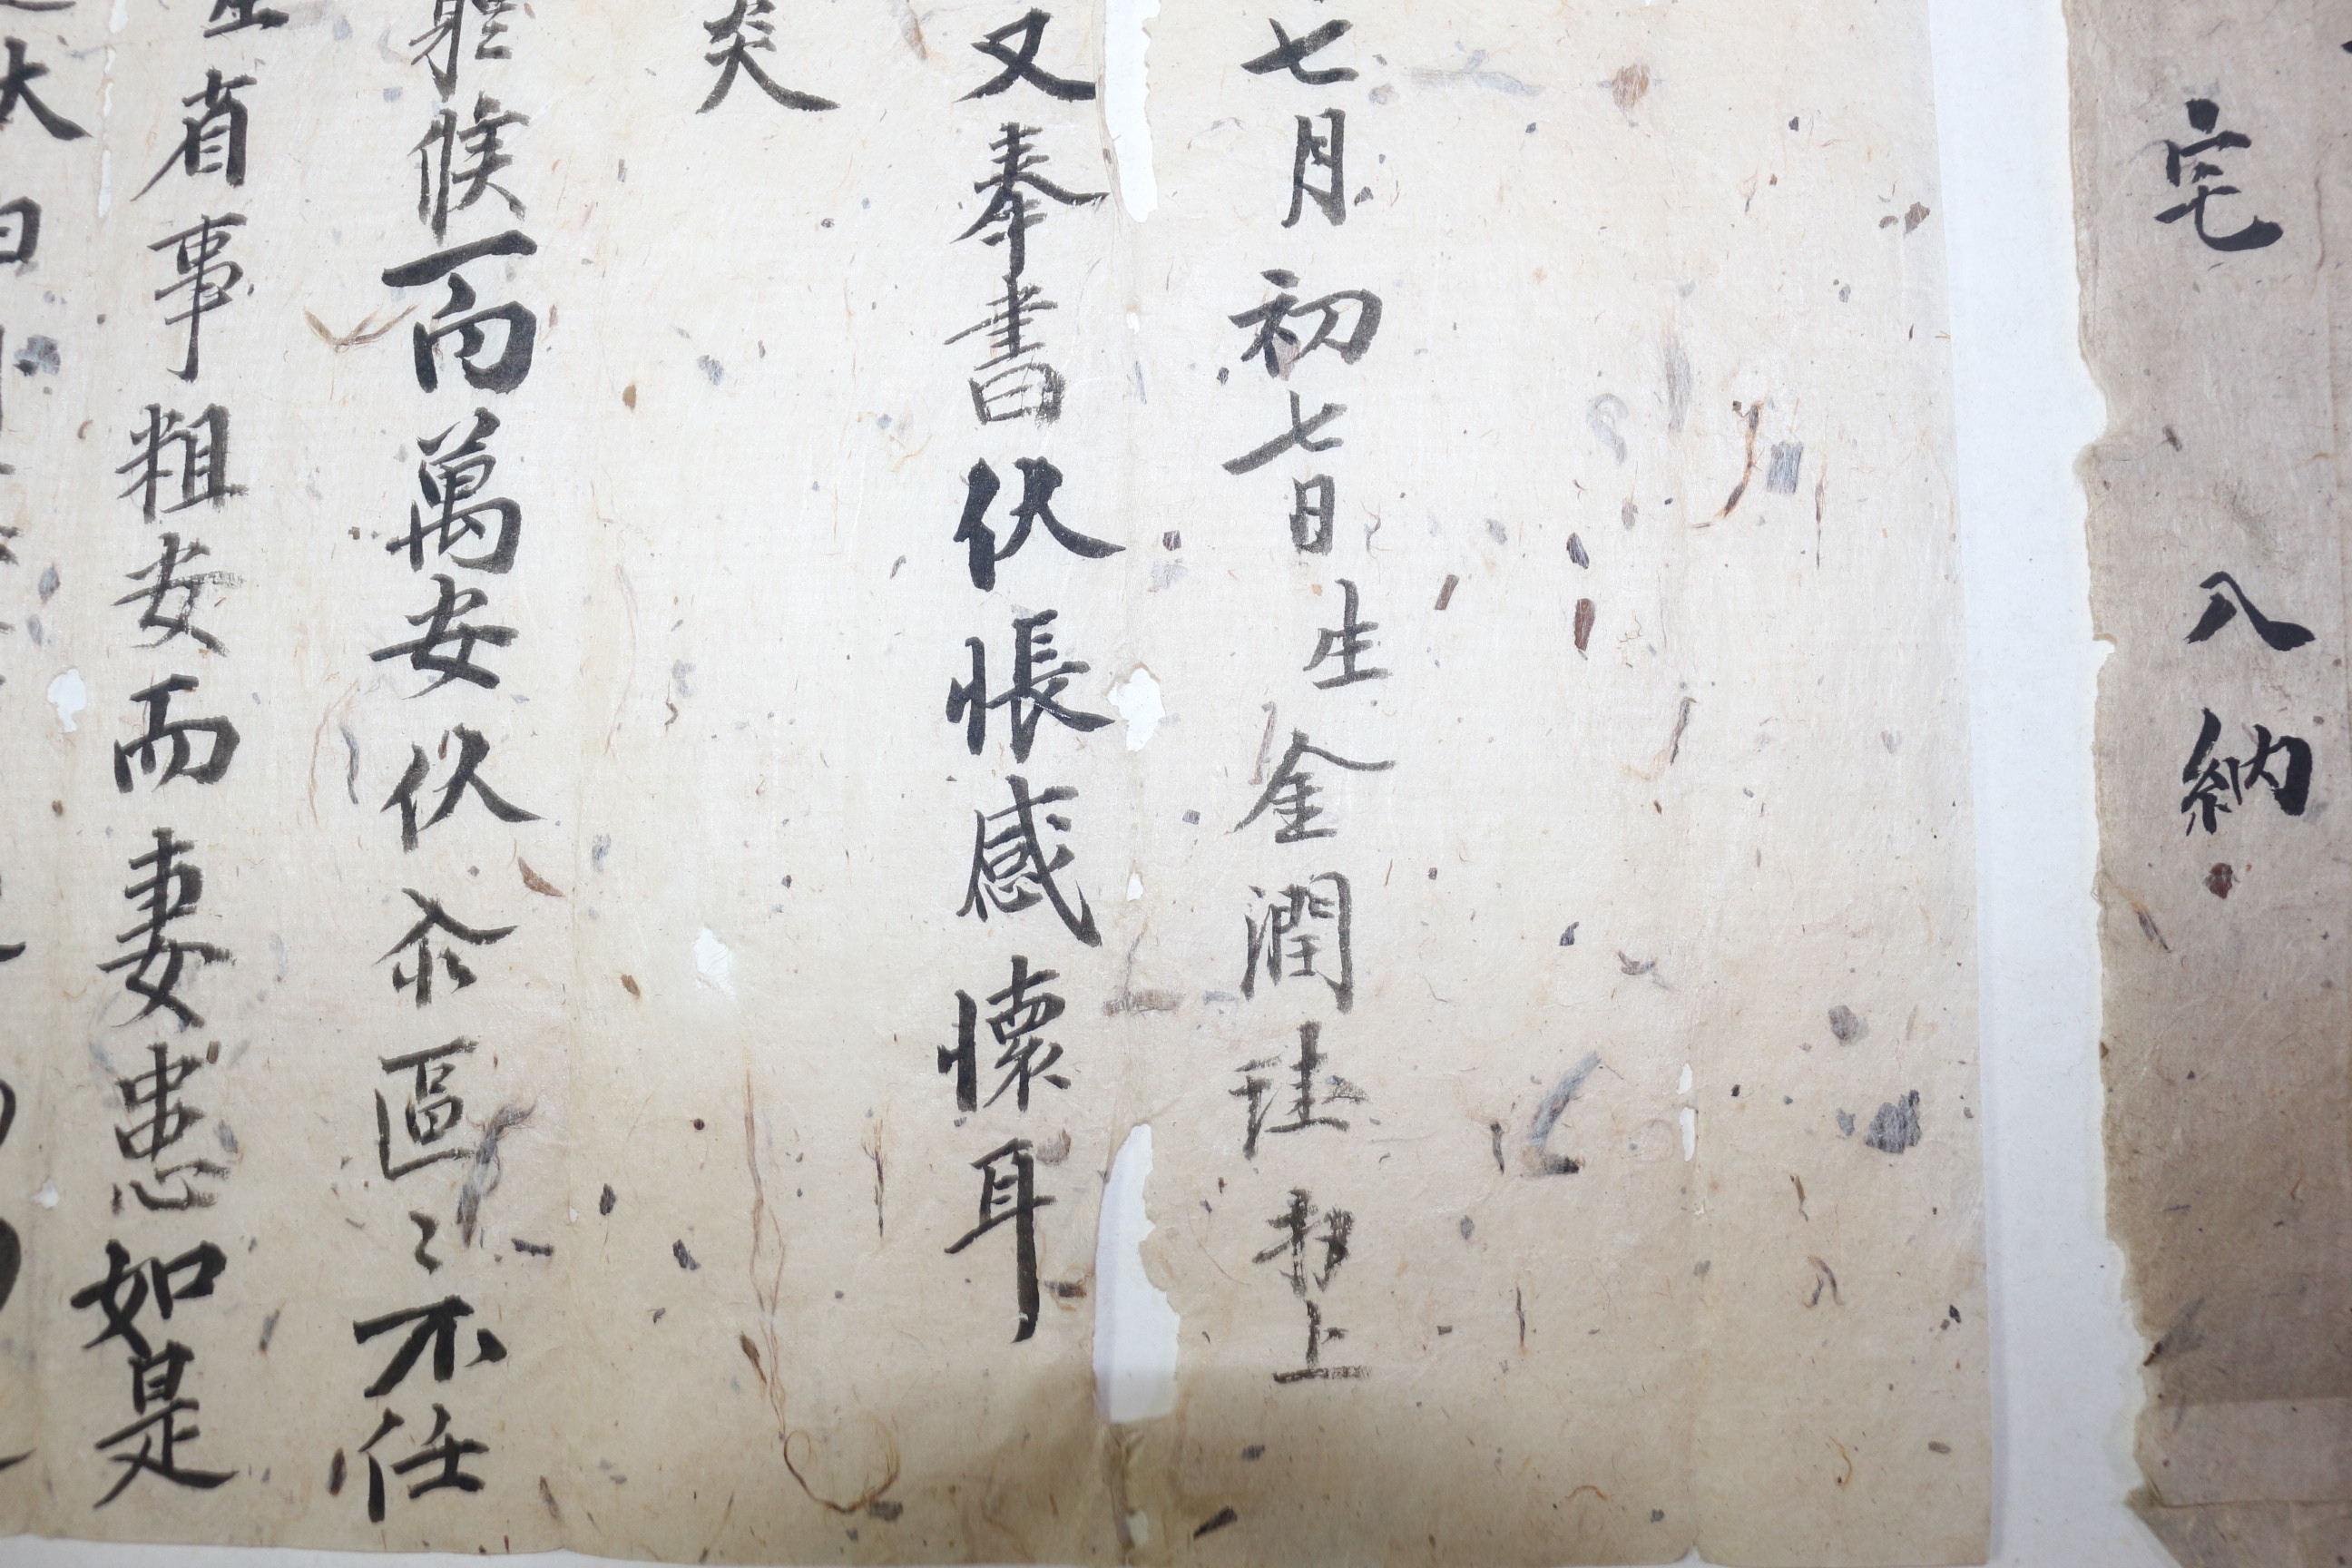 宅 入納
七月初七日生金潤珪上
又奉書伏悵感懷耳
炎
候一向萬安伏區〻不任
省事粗安而妻患如是
大